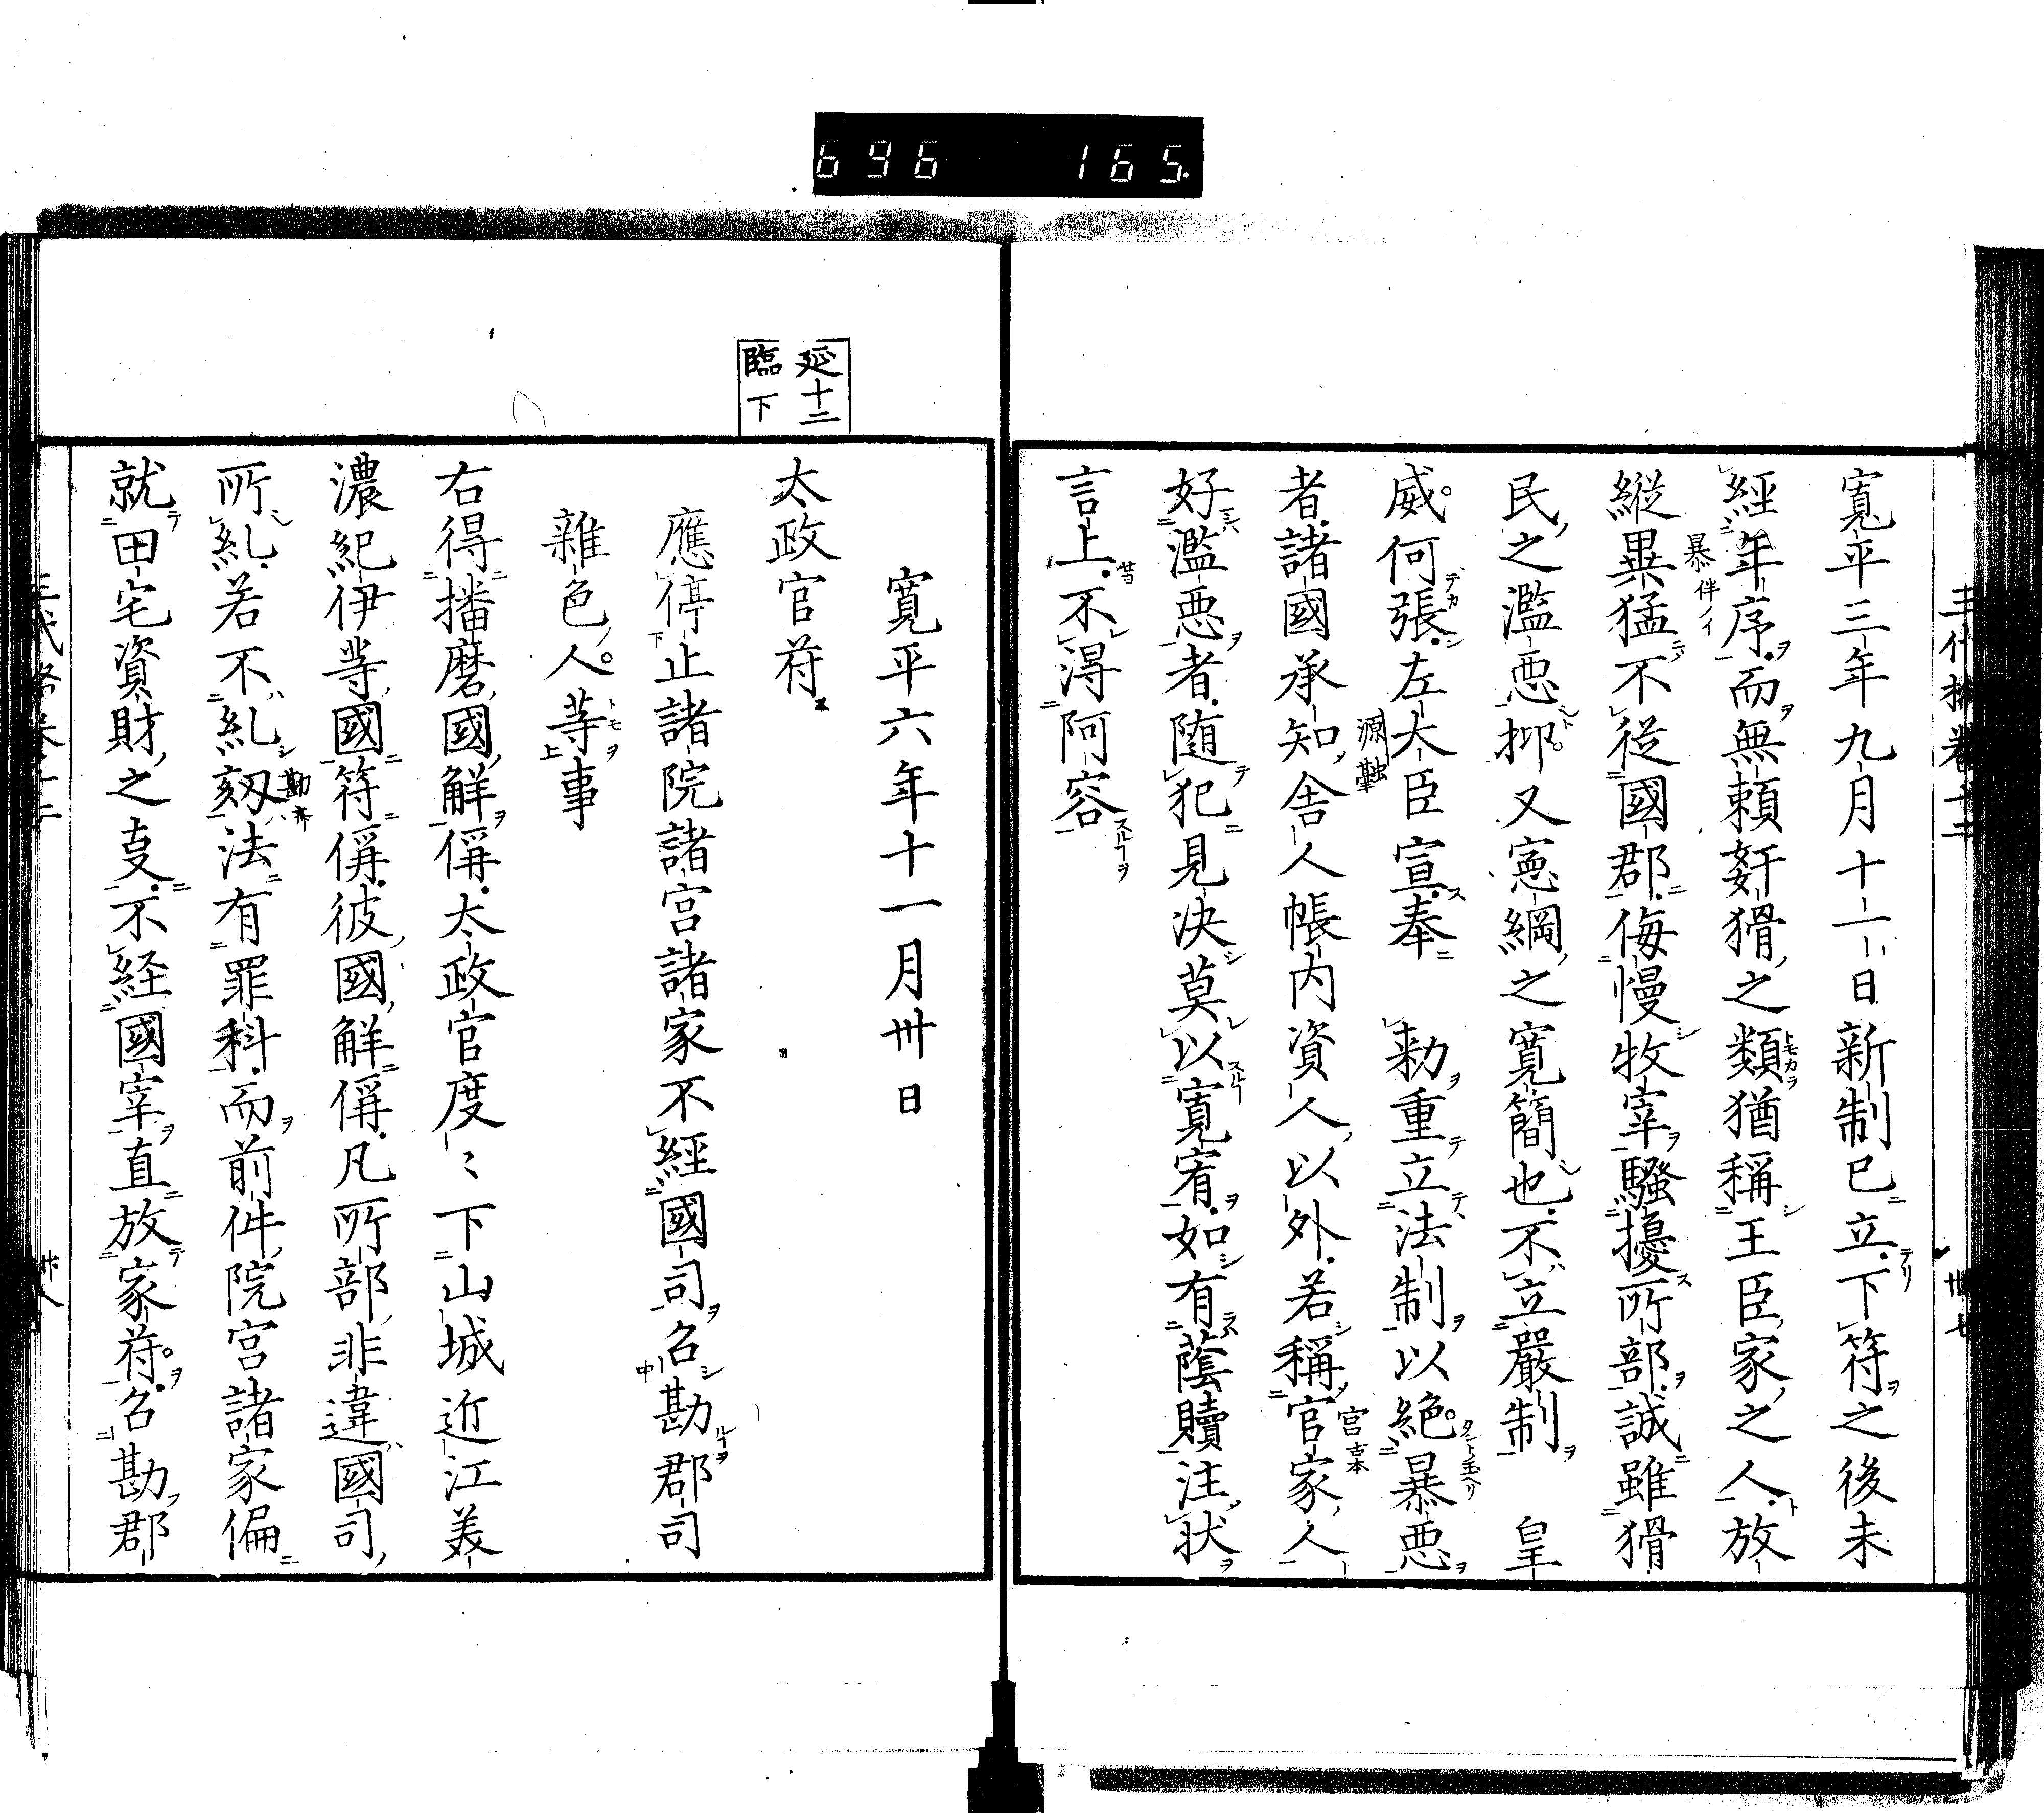 696 165
寛平三年九月十一日新制已立下符之後未
經年序而無頼姧猾之類猶稱王臣家之人放
縦異猛不從國郡侮慢牧宰騷擾所部誠雖猾
暴伴ノイ
民之濫悪抑又憲綱之寛簡也不立嚴制 皇
威何張左大臣宣奉 勅重立法制以絶暴悪
源融
者諸國承知舎人帳内資人以外若稱官家人
宮古本
好濫悪者随犯見決莫以寛宥如有蔭贖注状
言上不得阿容
寛平六年十一月卅日
延十二
臨下
太政官符
應停止諸院諸宮諸家不經國司召勘郡司
雜色人等事
右得播磨國解偁太政官度〻下山城近江美
濃紀伊等國符偁彼國解偁凡所部非違國司
所糺若不糺劾法有罪科而前件院宮諸家偏
就田宅資財之㕝不経國宰直放家符召勘郡